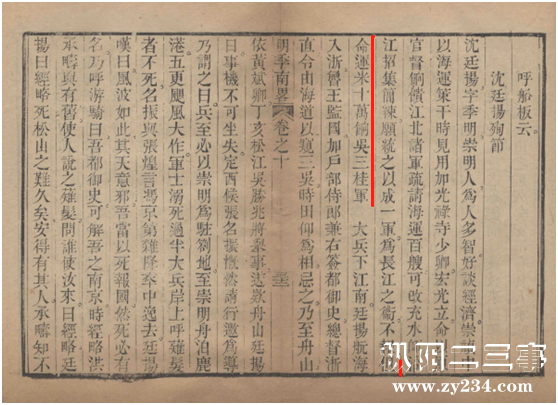 呼船板云
沈廷揚殉節
沈廷揚字季明崇明人爲人多智好談經濟崇禎中
以海運策干時見用加光祿寺少卿宏光立命以
官督餉饋江北諸軍疏請海運百艘可改充水
江招集簡練願統之以成一軍爲長江之衛不
命運米十萬餉吳三桂軍　大兵下江南廷揚航海
入浙魯王監國加戶部侍郎兼右僉都御史總督浙
直令由海道以窺三吳時田仰爲相忌之乃至舟山
明季南畧　卷之十　三十三
依黃斌卿丁亥松江吳勝兆將舉事送欵舟山廷揚
曰事機不可坐失定西侯張名振慨然請行邀爲導
乃謂之曰兵至必以崇明爲駐劄地至崇明舟泊鹿
港五更颶風大作軍士溺死過半大兵岸上呼薙髮
者不死名振與張煌言馮京第雜降卒中逸去廷揚
嘆曰風波如此其天意邪吾當以死報國然死必有
名乃呼游騎曰吾都御史可解吾之南京時經略洪
承疇與有舊使人說之薙髮問誰使汝來曰經略廷
揚曰經略死松山之難久矣安得有其人承疇知不
枞阳二三事
www.zy234.com